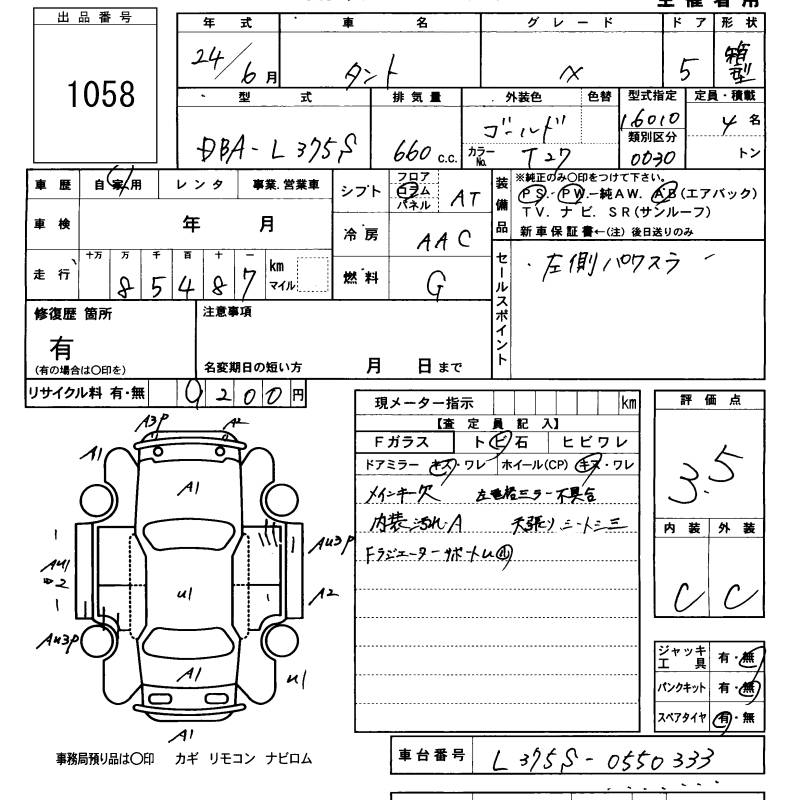 出品番号
1058
年式 車名 グレード ドア 形状
24/6月 タント X 5 箱型
型式 排気量 外装色 色替 型式指定 定員・積載
DBA-L375S 660c.c. ゴールド 16010 4名
カラーNo. T27 類別区分 0030 トン
車歴 自家用 レンタ 事業.営業車
シフト フロア コラム パネル AT
装備品 ※純正のみ〇印をつけて下さい。
PS.PW.純AW.AB(エアバック)
TV.ナビ.SR(サンルーフ)
新車保証書←(注)後日送りのみ
車検 年 月
冷房 AAC
走行 十万 万 千 百 十 一 km マイル
85487
燃料 G
セールスポイント
・左側パワスラ
修復歴 箇所
有
(有の場合は〇印を)
注意事項
名変期日の短い方 月 日まで
リサイクル料 有・無 9200円
現メーター指示 km
【査定員記入】
Fガラス トビ石 ヒビワレ
ドアミラー キズ・ワレ ホイール(CP) キズ・ワレ
メインキー欠 左電格ミラー不具合
内装汚れ・A 天張りシートシミ
Fラジエーターサポート
評価点
3.5
内装 外装
C C
ジャッキ工具 有・無
パンクキット 有・無
スペアタイヤ 有・無
A3P A2
A1
A1
AU3P
AU1
2
U1
A2
AU3P
A1
U1
A1
事務局預り品は〇印 カギ リモコン ナビロム
車台番号 L375S-0550333